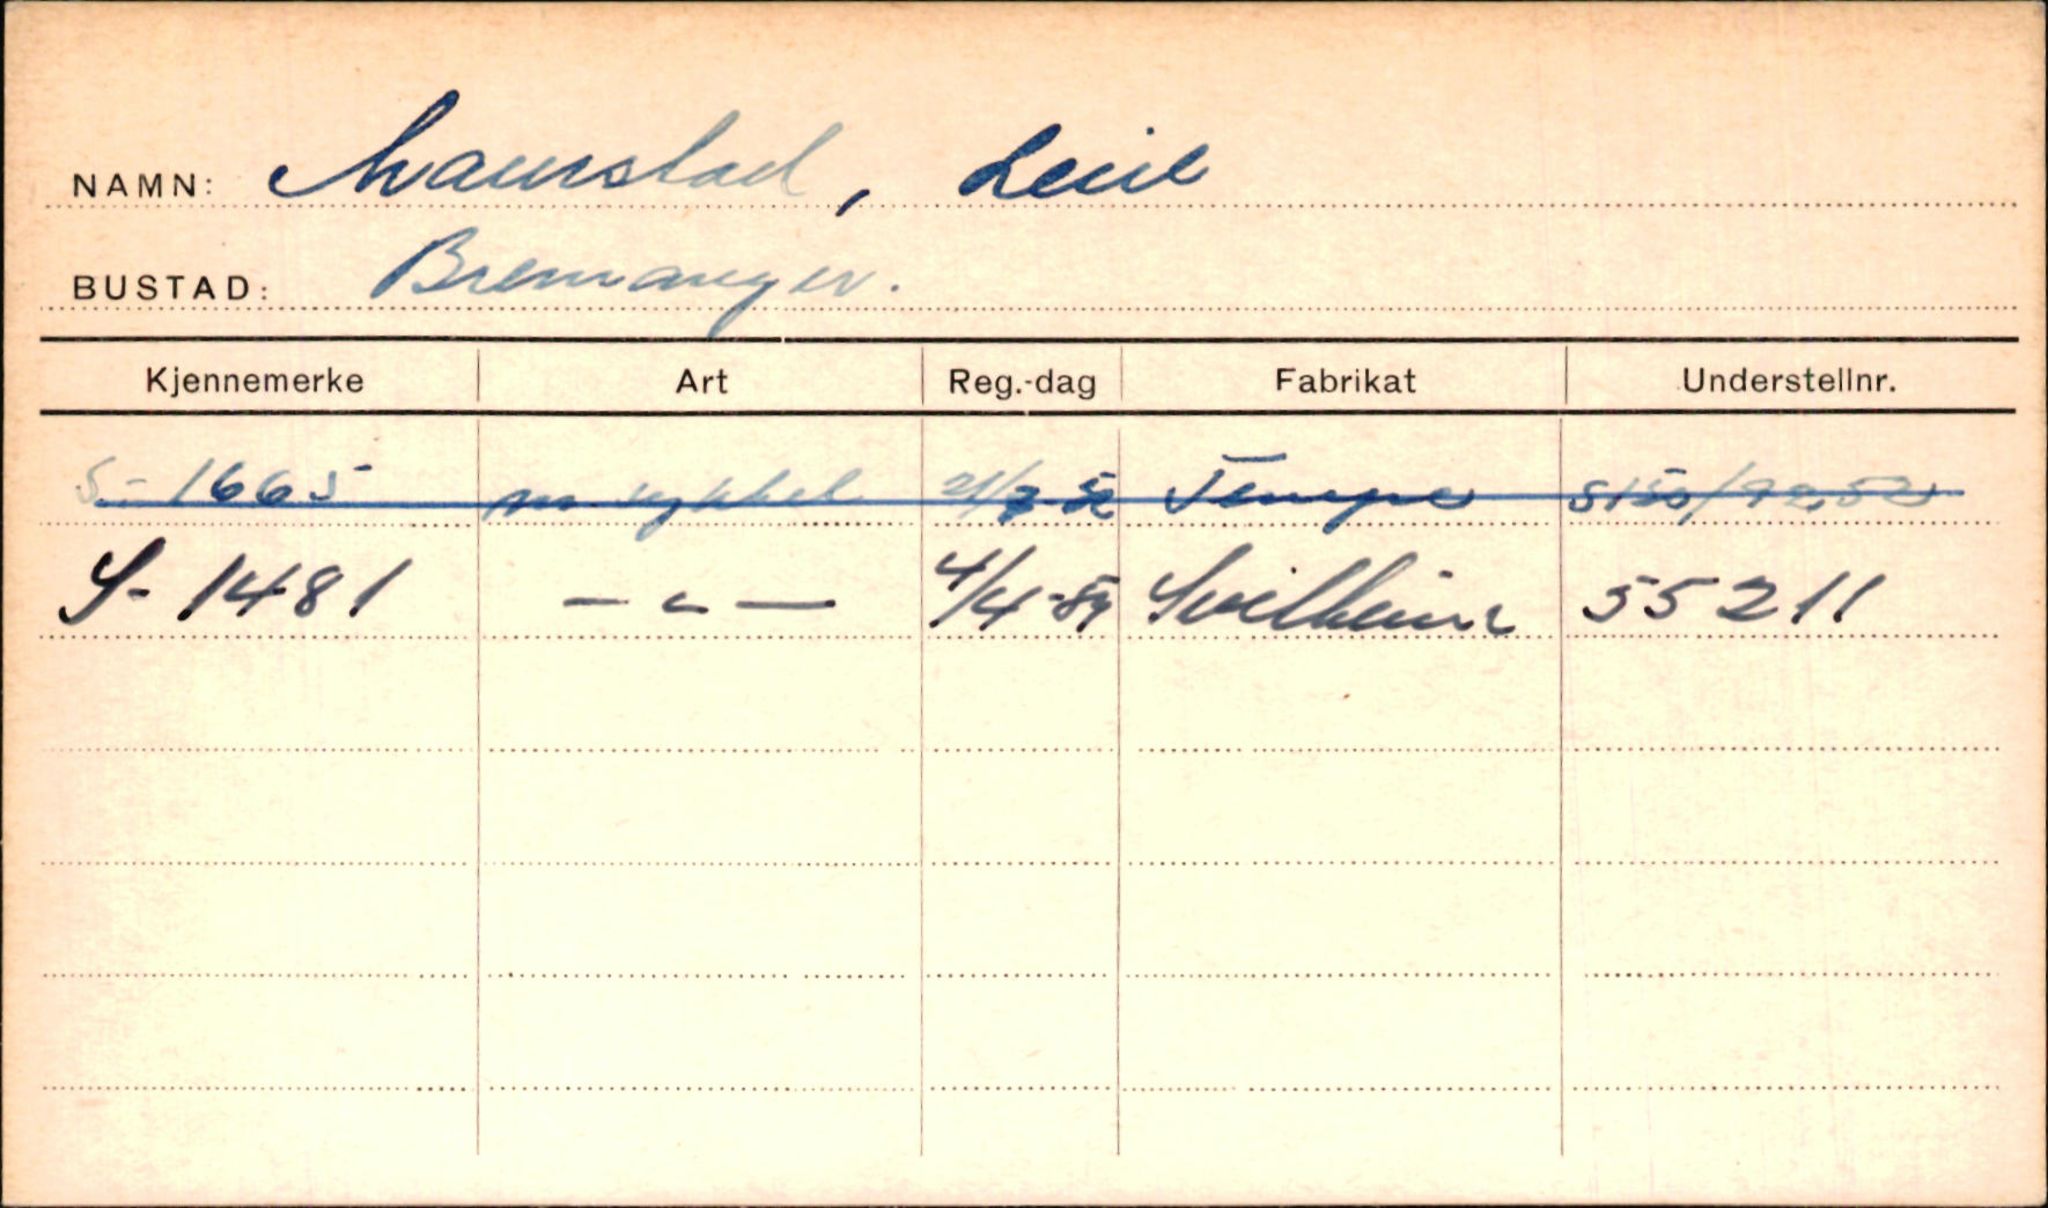 NAMN: Maurstad, Leiv
BUSTAD: Bremanger.
Kjennemerke Art Reg.-dag Fabrikat Understellnr.
S-1665 m. sykkel 21/3-52 Tempo
S-1481 — " — 4/4-59 Svithun 55211